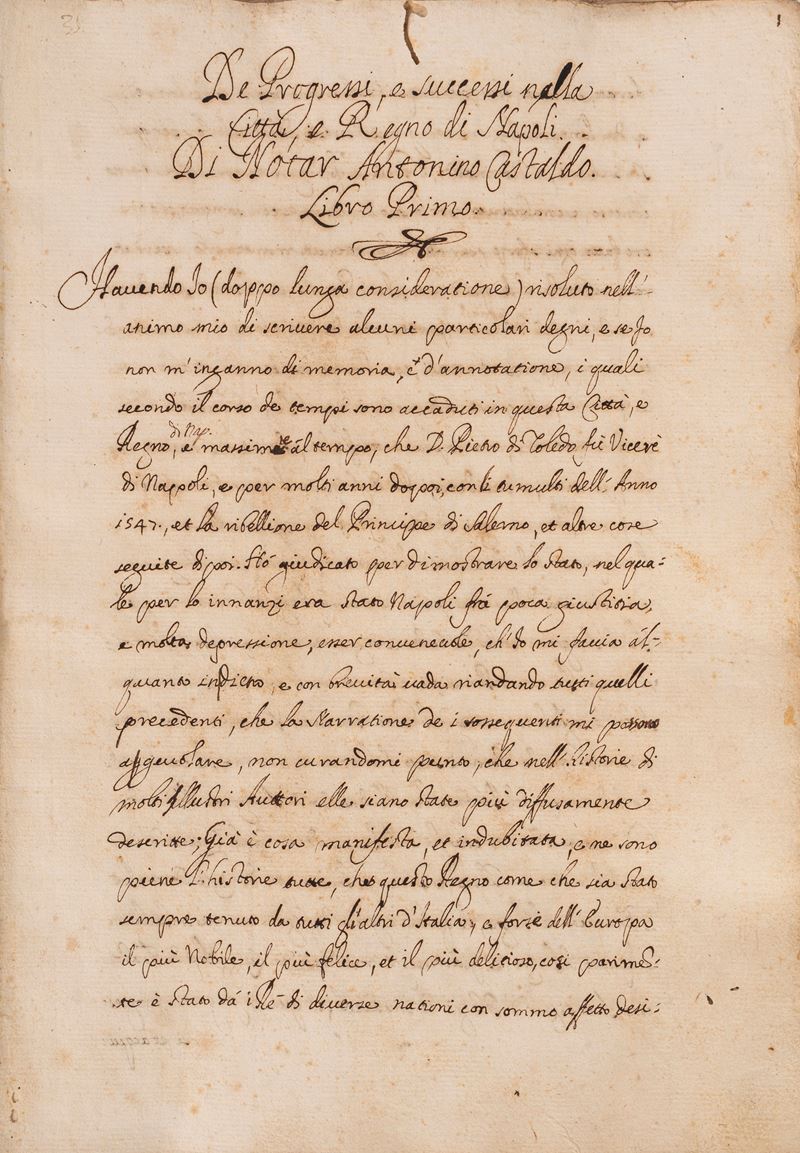 31
1
De Progressi, e successi nella
Città, e Regno di Napoli.
Di Notar Antonino Castaldo.
Libro Primo.
Havendo Io (doppo lunga consideratione) risoluto nell'
animo mio di scrivere alcuni particolari degni, e se Io
non m'inganno di memoria, e d'annotatione, i quali
secondo il corso de tempi sono accaduti in questa Città, e
di Nap.
Regno, e massime al tempo, che D. Pietro di Toledo fù Vicerè
di Napoli, e per molti anni doppoi, con li tumulti dell' Anno
1547., et la ribellione del Principe di Salerno, et altre cose
seguite dipoi. Hò giudicato per dimostrare lo stato, nel qua=
le per lo innanzi era stato Napoli frà poca giustitia,
e molta depressione, esser convenevole, ch'Io mi faccia al=
quanto indietro, e con brevità vada riandando tutti quelli
precedenti, che la Narratione de i sossequenti mi possono
agevolare, non curandomi punto, che nell' Historie di
molti Illustri Auttori elle siano state più diffusamente
descritte; Già è cosa manifesta, et indubitata, e ne sono
piene l'historie tutte, che questo Regno come che sia stato
sempre tenuto da tutti gl'altri d'Italia, e forse dell' Europa
il più Nobile, il più felice, et il più delitioso, così parimẽ=
te è stato dà i Rè di diverse nationi con sommo affetto desi=